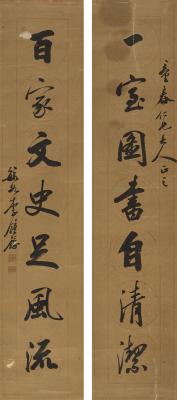 一室圖書自清潔
百家文史足風流
春仁兄大人正之
李